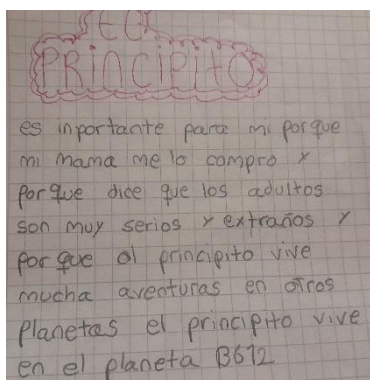 EL
PRINCIPITO
es inportante para mi porque
mi mama me lo compro y
Porque dice que los adultos
son muy serios y extraños y
Porque al principito vive
mucha aventuras en otros
Planetas el principito vive
en el planeta B612